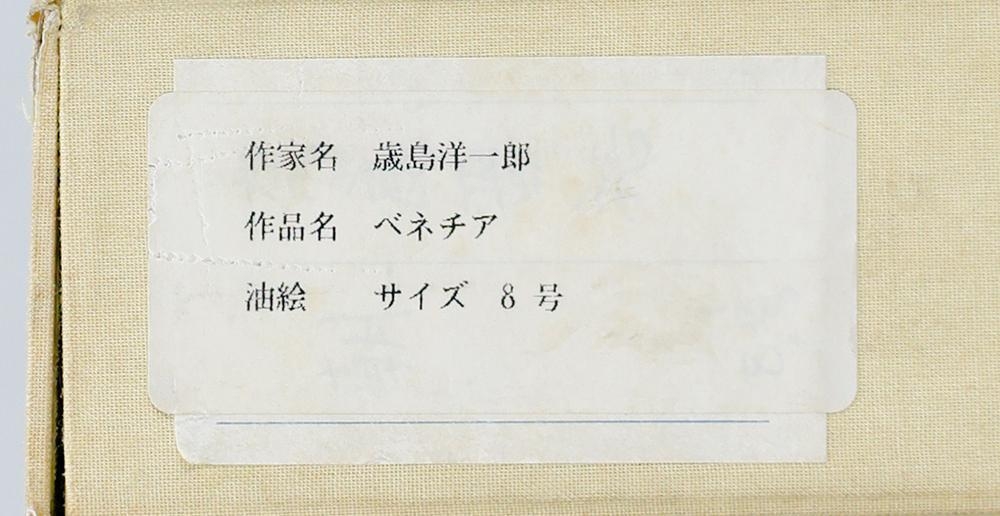 作家名 歳島洋一郎
作品名 ベネチア
油絵 サイズ 8 号